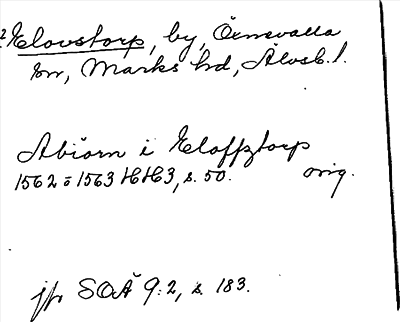 Elovstorp, by, Örnevalla
sn, Marks hd, Älvsb. l.
Abiörn i Eloffztorp
1562 ō 1563 HH3, s. 50. orig.
jfr SOÄ 9:2, s. 183.